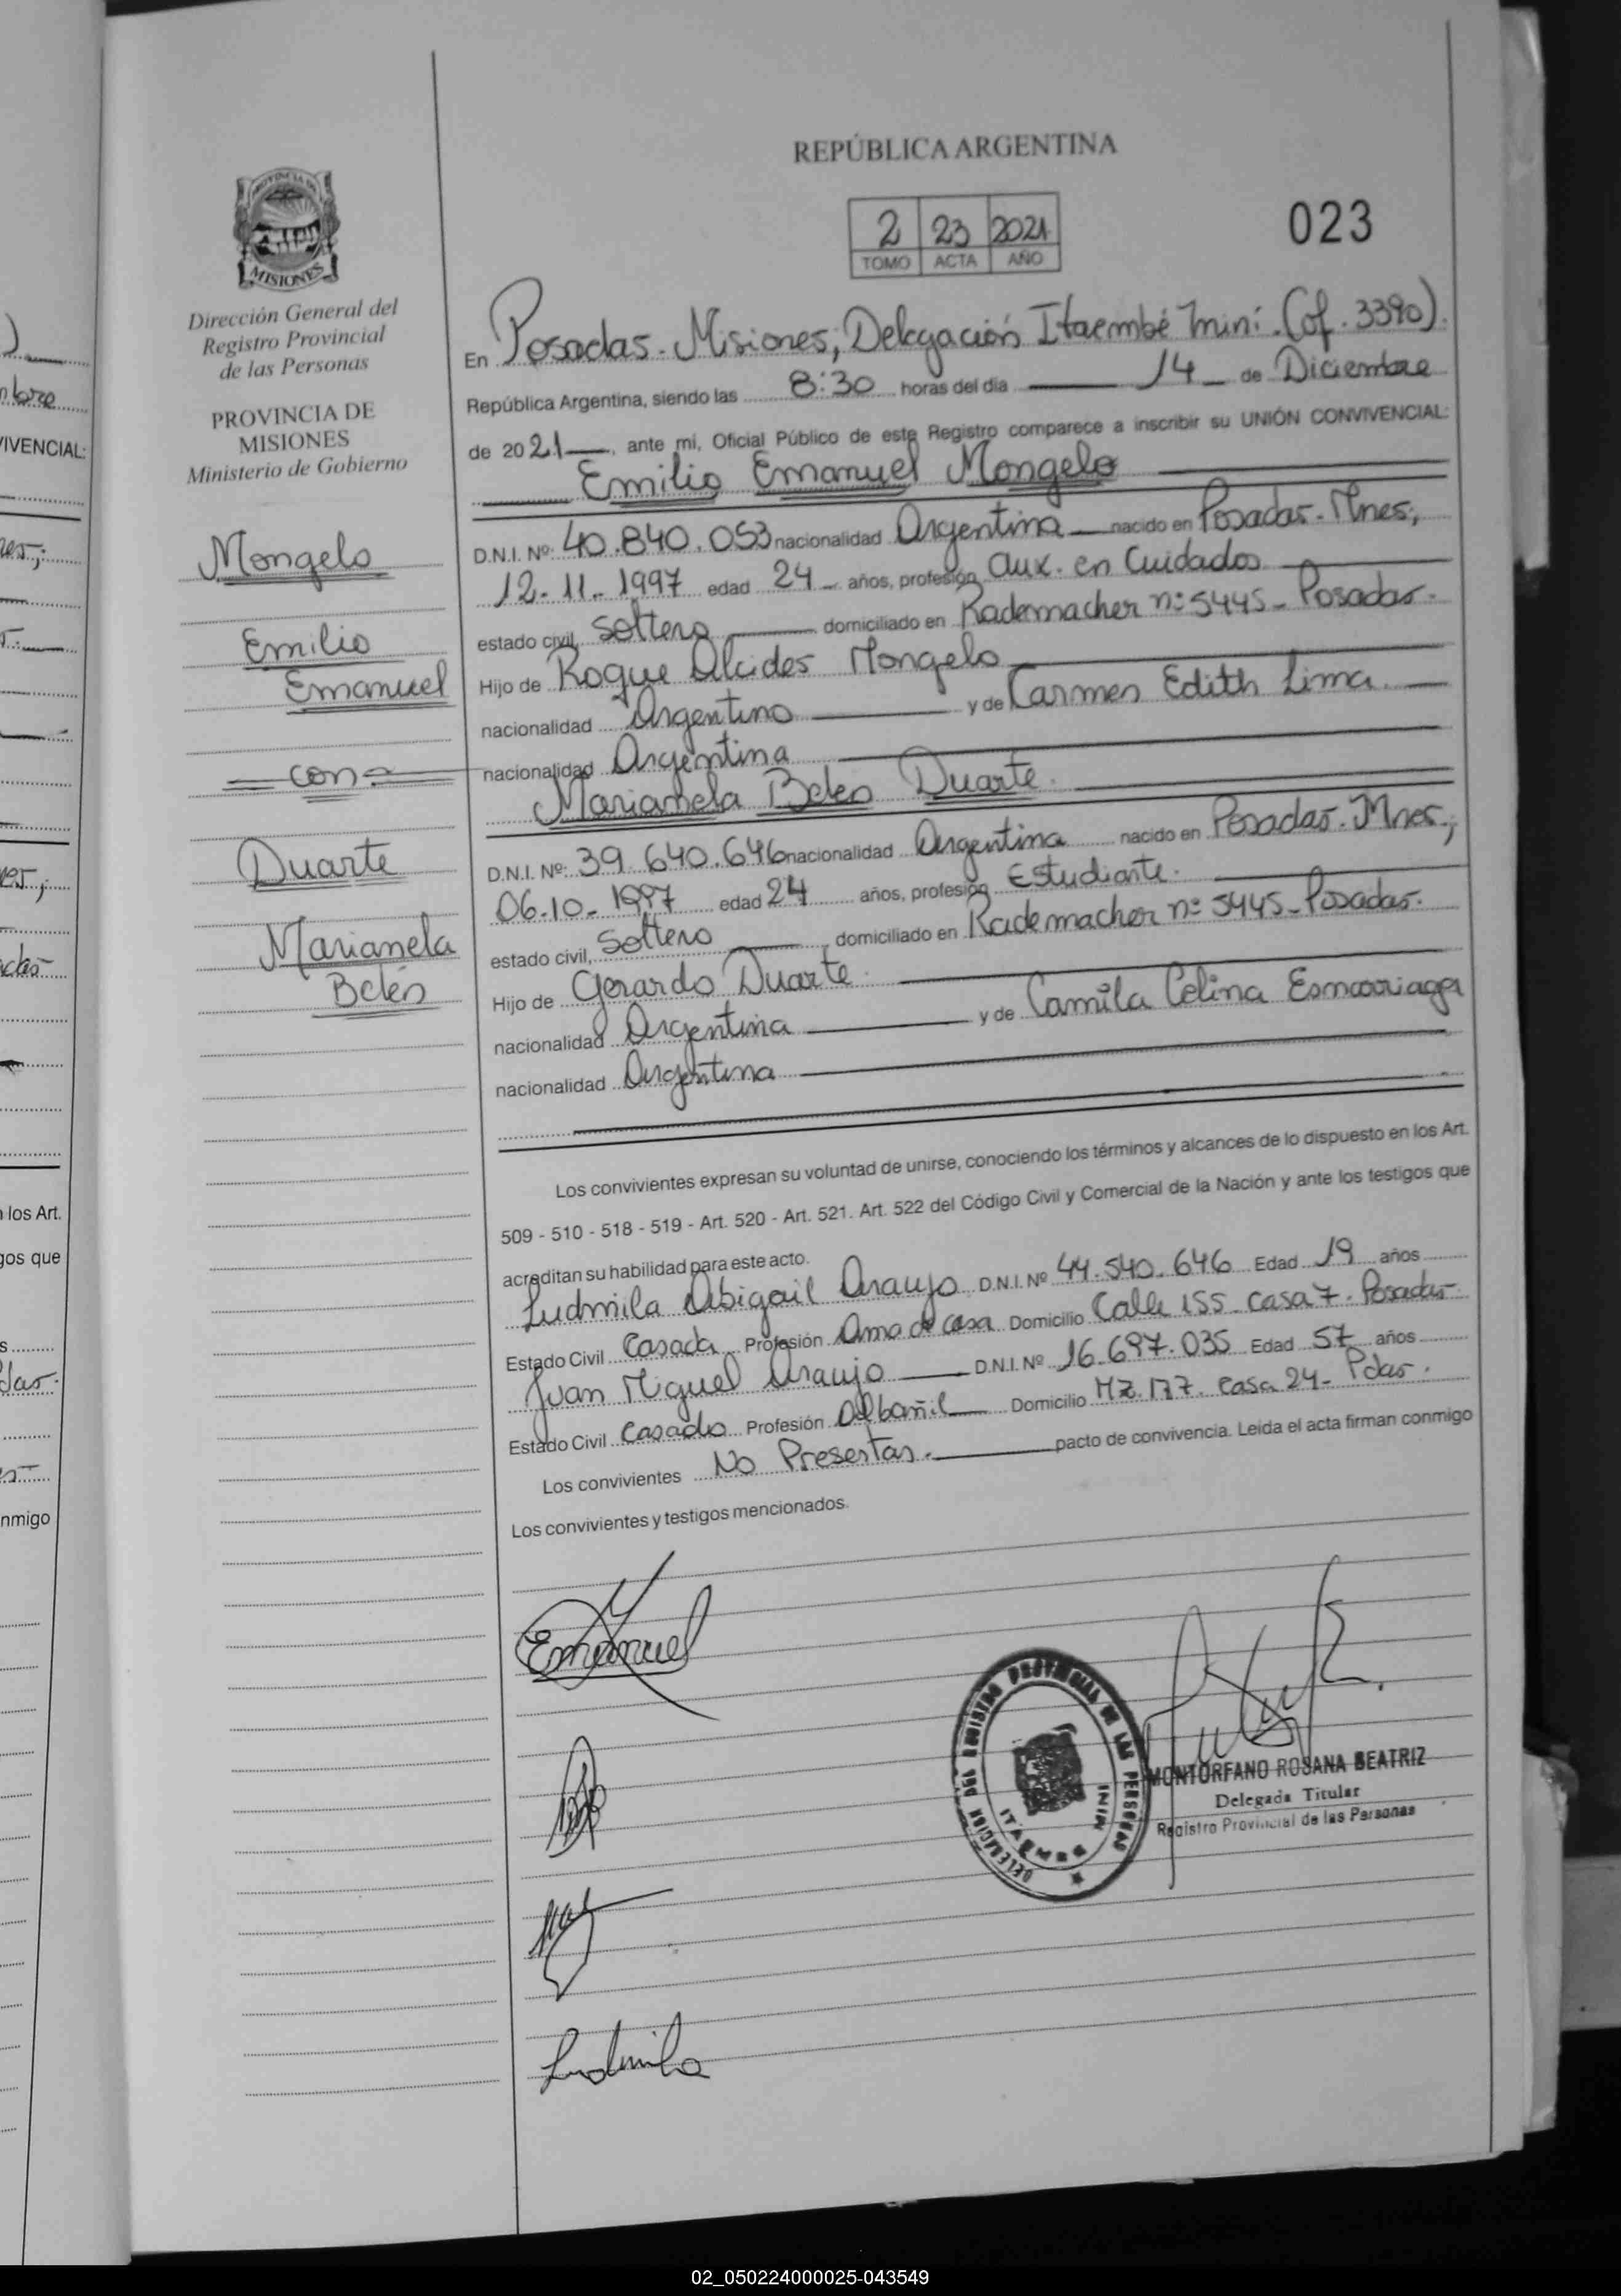 REPÚBLICA ARGENTINA
2 23 2021
TOMO ACTA AÑO
023
PROVINCIA DE
MISIONES
Dirección General del
Registro Provincial
de las Personas
PROVINCIA DE
MISIONES
Ministerio de Gobierno
Mongelo
Emilio
Emanuel
con
Duarte
Marianela
Belén
En Posadas. Misiones; Delegación Itaembé Miní. (of. 3390).
República Argentina, siendo las 8:30 horas del día 14 de Diciembre
de 2021, ante mi, Oficial Público de este Registro comparece a inscribir su UNIÓN CONVIVENCIAL:
Emilio Emanuel Mongelo
D.N.I. Nº: 40.840.053 nacionalidad Argentina nacido en Posadas. Mnes;
12-11-1997 edad 24 años, profesión Aux. en Cuidados
estado civil, Soltero domiciliado en Rademacher nº 5445- Posadas.
Hijo de Roque Alcides Mongelo
nacionalidad Argentino y de Carmen Edith Lima.
nacionalidad Argentina
Marianela Belén Duarte.
D.N.I. Nº: 39.640.646 nacionalidad Argentina nacido en Posadas. Mnes;
06-10-1997 edad 24 años, profesión Estudiante.
estado civil, Soltero, domiciliado en Rademacher nº 5445- Posadas.
Hijo de Gerardo Duarte.
nacionalidad Argentina y de Camila Celina
nacionalidad Argentina
Los convivientes expresan su voluntad de unirse, conociendo los términos y alcances de lo dispuesto en los Art.
509 - 510 - 518 - 519 - Art. 520 - Art. 521. Art. 522 del Código Civil y Comercial de la Nación y ante los testigos que
acreditan su habilidad para este acto.
Ludmila Abigail Araujo D.N.I. Nº 44.540.646 Edad 19 años
Estado Civil Casada Profesión Ama de casa Domicilio Calle 155 casa 7. Posadas
Juan Miguel Araujo D.N.I. Nº 16.697.035 Edad 57 años
Estado Civil Casado Profesión Albañil Domicilio Mz. 177. casa 24- Pdas.
Los convivientes No Presentan. pacto de convivencia. Leida el acta firman conmigo
Los convivientes y testigos mencionados.
Emanuel
DELEGACION DEL REGISTRO PROVINCIAL DE LAS PERSONAS
ITAEMBE MINI
MONTORFANO ROSANA BEATRIZ
Delegada Titular
Registro Provincial de las Personas
Ludmila
02_050224000025-043549